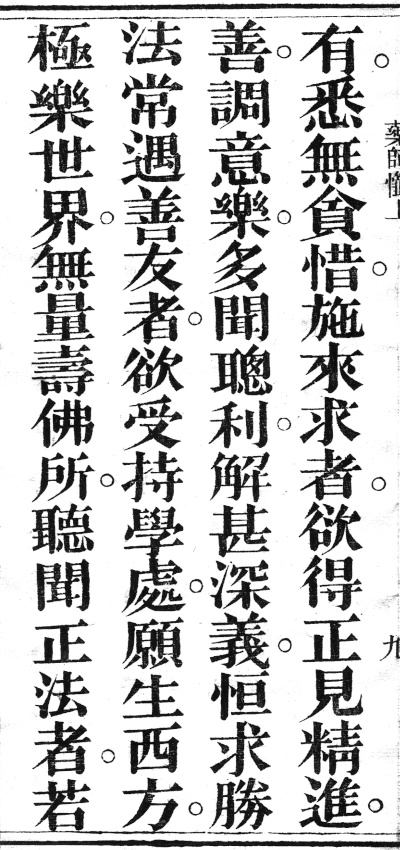 藥師懺上 九
有。悉無貪惜。施來求者。欲得正見精進。
善。調意樂。多聞聰利。解甚深義。恒求勝
法常遇善友者。欲受持學處。願生西方。
極樂世界。無量壽佛所。聽聞正法者。若